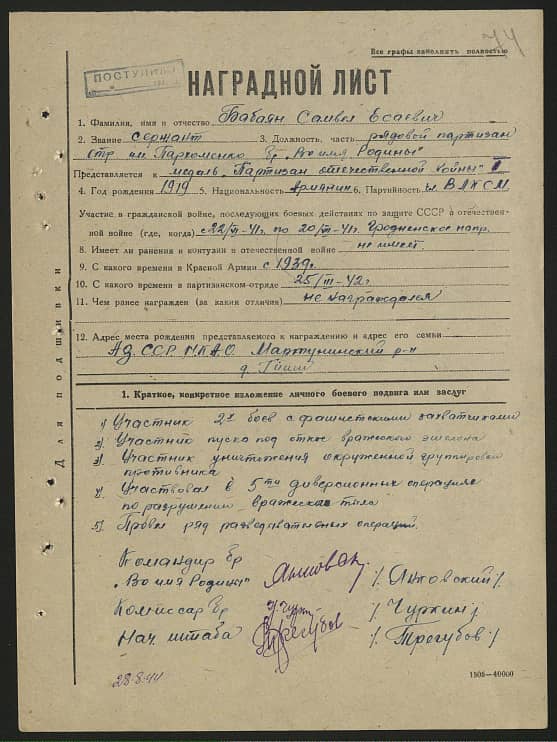 74
Все графы заполнять полностью
ПОСТУПИЛО
НАГРАДНОЙ ЛИСТ
1. Фамилия, имя и отчество Бабаян Самвел Есаевич
2. Звание сержант 3. Должность, часть рядовой партизан
отр. им. Пархоменко бр. „Во имя Родины"
Представляется к медаль „Партизан отечественной войны" II
4. Год рождения 1919 5. Национальность Армянин 6. Партийность чл. ВЛКСМ
Участие в гражданской войне, последующих боевых действиях по защите СССР и отечествен-
ной войне (где, когда) с 22/VI-41г. по 20/VII-41г. Гродненское напр.
8. Имеет ли ранения и контузии в отечественной войне не имеет.
9. С какого времени в Красной Армии с 1939г.
10. С какого времени в партизанском отряде 25/III-42г.
11. Чем ранее награжден (за какия отличия) не награждался
12. Адрес места рождения представляемого к награждению и адрес его семьи
Аз. ССР Н.К.А.О. Мартунинский р-н
д. Гиши
Для подшивки
1. Краткое, конкретное изложение личного боевого подвига или заслуг
1) Участник 2х боев с фашистскими захватчиками
2) Участник пуска под откос вражеского эшелона
3) Участник уничтожения окруженной группировки
противника
4) Участвовал в 5ти диверсионных операциях
по разрушению вражеского тыла
5) Провел ряд разведывательных операций.
Командир бр
„Во имя Родины" /Янковский/
Комиссар бр Чурк /Чуркин/
Нач. штаба Трегубов /Трегубов/
28-8-44
1505—40000